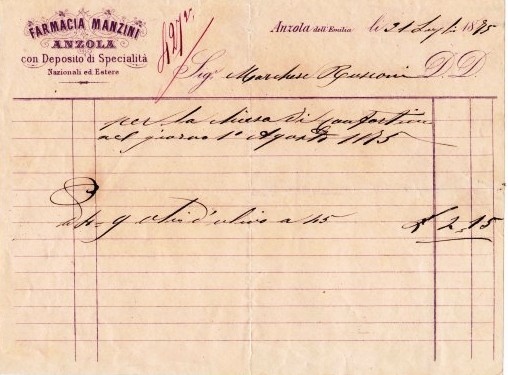 FARMACIA MANZINI
ANZOLA
con Deposito di Specialità
Nazionali ed Estere
427
Anzola dell'Emilia li 31 Luglio 1895
Sig. Marchese Rusconi D. D.
per la Chiesa di Confortino
nel giorno 1º Agosto 1895
9 olio d'ulivo a 45 £ 2,15